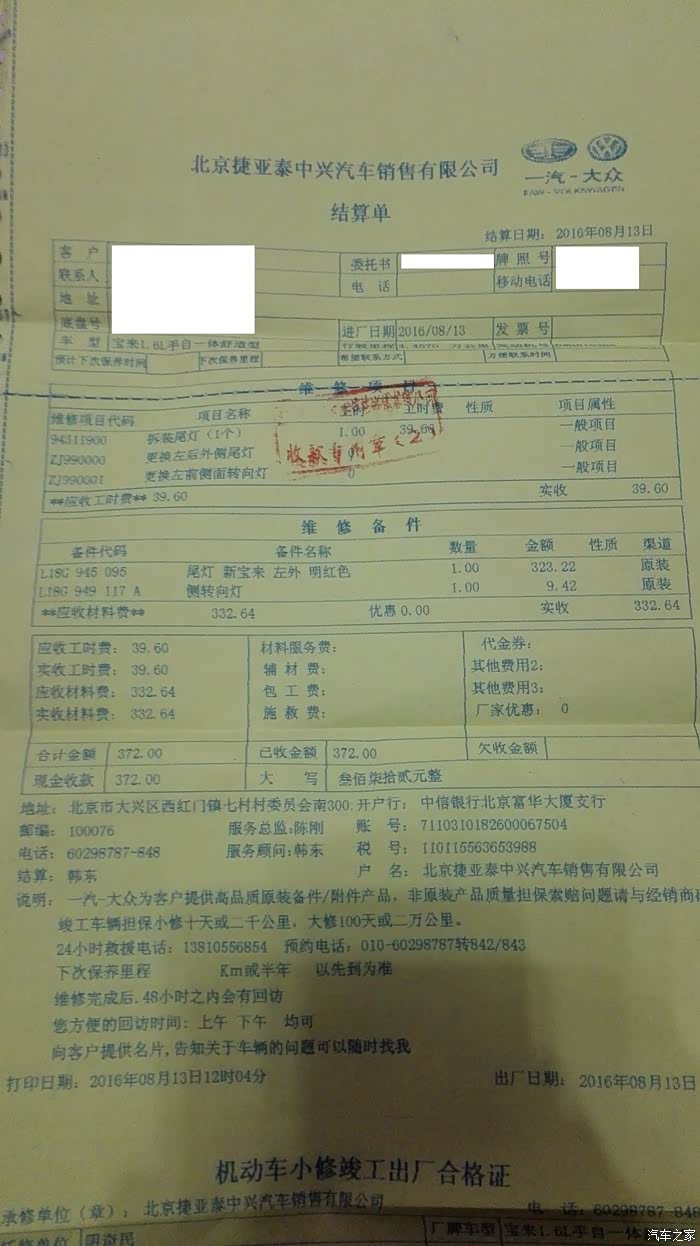 北京捷亚泰中兴汽车销售有限公司
一汽-大众
FAW-VOLKSWAGEN
结算单
结算日期: 2016年08月13日
客 户 委托书 牌 照 号
联系人 电 话 移动电话
地 址
底盘号 进厂日期 2016/08/13 发 票 号
车 型 宝来1.6L手自一体舒适型 行驶里程
预计下次保养时间 下次保养里程 希望联系方式 方便联系时间
维 修 项 目
维修项目代码 项目名称 工时 工时费 性质 项目属性
94311900 拆装尾灯(1个) 1.00 39.60 一般项目
ZJ990000 更换左后外侧尾灯 一般项目
ZJ990001 更换左前侧面转向灯 0 一般项目
收款专用章(2)
**应收工时费** 39.60 实收 39.60
维 修 备 件
备件代码 备件名称 数量 金额 性质 渠道
L18G 945 095 尾灯 新宝来 左外 明红色 1.00 323.22 原装
L18G 949 117 A 侧转向灯 1.00 9.42 原装
**应收材料费** 332.64 优惠 0.00 实收 332.64
应收工时费: 39.60 材料服务费: 代金券:
实收工时费: 39.60 辅 材 费: 其他费用2:
应收材料费: 332.64 包 工 费: 其他费用3:
实收材料费: 332.64 施 救 费: 厂家优惠: 0
合计金额 372.00 已收金额 372.00 欠收金额
现金收款 372.00 大 写 叁佰柒拾贰元整
地址: 北京市大兴区西红门镇七村村委员会南300 开户行: 中信银行北京富华大厦支行
邮编: 100076 服务总监:陈刚 账 号: 7110310182600067504
电话: 60298787-848 服务顾问:韩东 税 号: 110115563653988
结算: 韩东 户 名: 北京捷亚泰中兴汽车销售有限公司
说明: 一汽-大众为客户提供高品质原装备件/附件产品, 非原装产品质量担保索赔问题请与经销商
竣工车辆担保小修十天或二千公里, 大修100天或二万公里。
24小时救援电话: 13810556854 预约电话: 010-60298787转842/843
下次保养里程 Km或半年 以先到为准
维修完成后.48小时之内会有回访
您方便的回访时间: 上午 下午 均可
向客户提供名片,告知关于车辆的问题可以随时找我
打印日期: 2016年08月13日12时04分 出厂日期: 2016年08月13日
机动车小修竣工出厂合格证
承修单位(章): 北京捷亚泰中兴汽车销售有限公司 电 话: 60298787-848
托修单位 阴奇民 厂牌车型 宝来1.6L手自一体
汽车之家